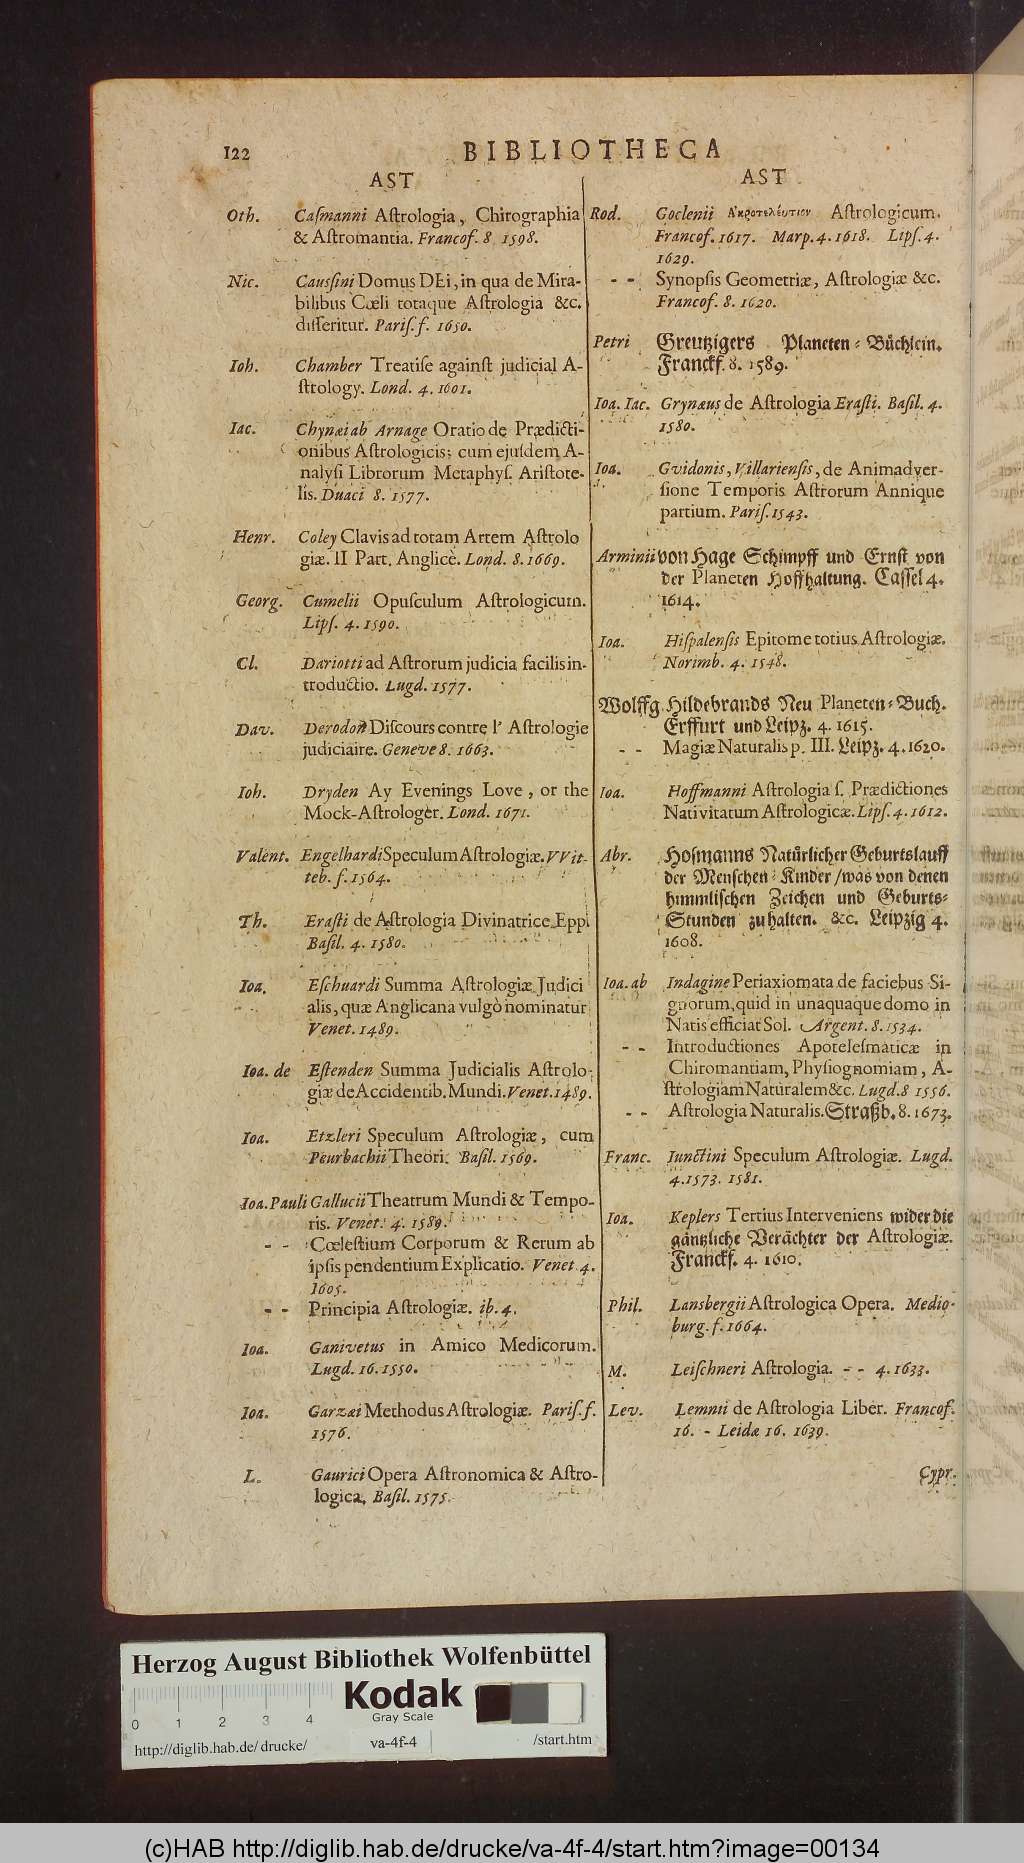 122
BIBLIOTHECA
AST
Oth. Caſmanni Aſtrologia, Chirographia
& Aſtromantia. Francof. 8 1598.
Nic. Cauſſini Domus DEi, in qua de Mira-
bilibus Cœli totaque Aſtrologia &c.
diſſeritur. Pariſ. f. 1650.
Ioh. Chamber Treatiſe againſt judicial A-
ſtrology. Lond. 4. 1601.
Iac. Chynæi ab Arnage Oratio de Prædicti-
onibus Aſtrologicis; cum ejuſdem A-
nalyſi Librorum Metaphyſ. Ariſtote-
lis. Duaci 8. 1577.
Henr. Coley Clavis ad totam Artem Aſtrolo
giæ. II Part. Anglicè. Lond. 8. 1669.
Georg. Cumelii Opuſculum Aſtrologicum.
Lipſ. 4. 1590.
Cl. Dariotti ad Aſtrorum judicia facilis in-
troductio. Lugd. 1577.
Dav. Derodon Diſcours contre l' Aſtrologie
judiciaire. Geneve 8. 1663.
Ioh. Dryden Ay Evenings Love, or the
Mock-Aſtrologer. Lond. 1671.
Valent. Engelhardi Speculum Aſtrologiæ. VVit-
teb. f. 1564.
Th. Eraſti de Aſtrologia Divinatrice Epp.
Baſil. 4. 1580.
Ioa. Eſchuardi Summa Aſtrologiæ Judici
alis, quæ Anglicana vulgò nominatur
Venet. 1489.
Ioa. de Eſtenden Summa Judicialis Aſtrolo-
giæ de Accidentib. Mundi. Venet. 1489.
Ioa. Etzleri Speculum Aſtrologiæ, cum
Peurbachii Theori. Baſil. 1569.
Ioa. Pauli Gallucii Theatrum Mundi & Tempo-
ris. Venet. 4. 1589.
- - Cœleſtium Corporum & Rerum ab
ipſis pendentium Explicatio. Venet 4.
1605.
- - Principia Aſtrologiæ. ib. 4.
Ioa. Ganivetus in Amico Medicorum.
Lugd. 16. 1550.
Ioa. Garzæi Methodus Aſtrologiæ. Pariſ. f.
1576.
L. Gaurici Opera Aſtronomica & Aſtro-
logica. Baſil. 1575.
AST
Rod. Goclenii Ἀκροτελέυτιον Aſtrologicum.
Francof. 1617. Marp. 4. 1618. Lipſ. 4.
1629.
- - Synopſis Geometriæ, Aſtrologiæ &c.
Francof. 8. 1620.
Petri Greutzigers Planeten-Büchlein.
Franckf. 8. 1589.
Ioa. Iac. Grynæus de Aſtrologia Eraſti. Baſil. 4.
1580.
Ioa. Gvidonis, Villarienſis, de Animadver-
ſione Temporis Aſtrorum Annique
partium. Pariſ. 1543.
Arminii von Hage Schimpff und Ernſt von
der Planeten Hoffhaltung. Caſſel 4.
1614.
Ioa. Hiſpalenſis Epitome totius Aſtrologiæ.
Norimb. 4. 1548.
Wolffg. Hildebrands Neu Planeten-Buch.
Erffurt und Leipz. 4. 1615.
- - Magiæ Naturalis p. III. Leipz. 4. 1620.
Ioa. Hoffmanni Aſtrologia ſ. Prædictiones
Nativitatum Aſtrologicæ. Lipſ. 4. 1612.
Abr. Hoſmanns Natürlicher Geburtslauff
der Menſchen-Kinder / was von denen
himmliſchen Zeichen und Geburts-
Stunden zu halten. &c. Leipzig 4.
1608.
Ioa. ab Indagine Periaxiomata de faciebus Si-
gnorum, quid in unaquaque domo in
Natis efficiat Sol. Argent. 8. 1534.
- - Introductiones Apoteleſmaticæ in
Chiromantiam, Phyſiognomiam, A-
ſtrologiam Naturalem &c. Lugd. 8 1556.
- - Aſtrologia Naturalis. Straßb. 8. 1673.
Franc. Iunctini Speculum Aſtrologiæ. Lugd.
4. 1573. 1581.
Ioa. Keplers Tertius Interveniens wider die
gäntzliche Verächter der Aſtrologiæ.
Franckf. 4. 1610.
Phil. Lansbergii Aſtrologica Opera. Medio-
burg. f. 1664.
M. Leiſchneri Aſtrologia. - - 4. 1633.
Lev. Lemnii de Aſtrologia Liber. Francof.
16. - Leidæ 16. 1639.
Cypr.
Herzog August Bibliothek Wolfenbüttel
Kodak
Gray Scale
0 1 2 3 4
http://diglib.hab.de/drucke/ va-4f-4 /start.htm
(c)HAB http://diglib.hab.de/drucke/va-4f-4/start.htm?image=00134